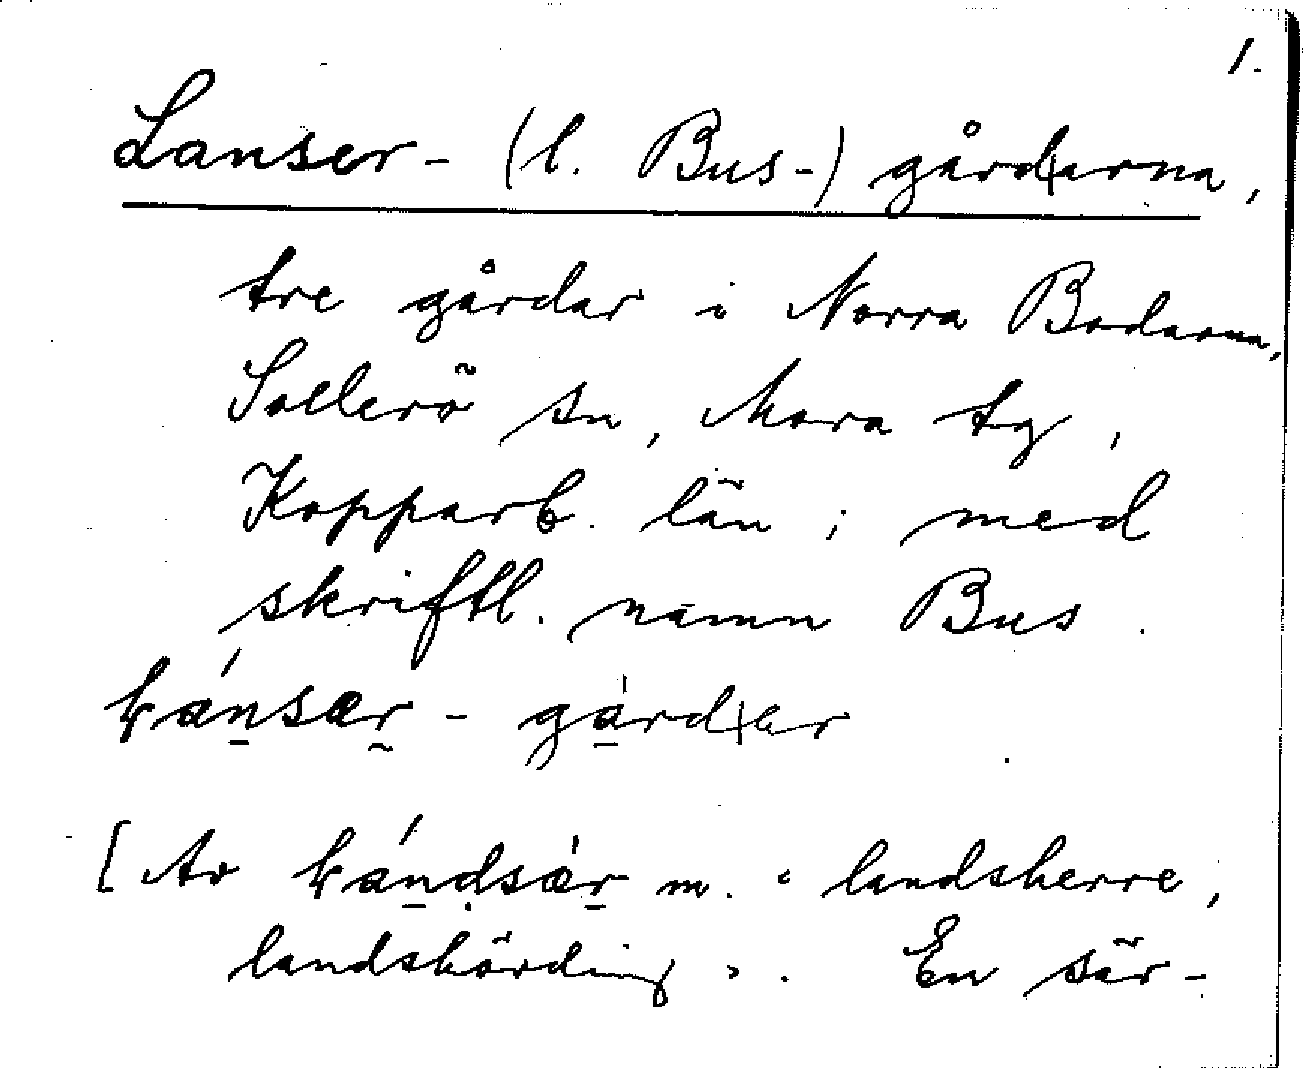 1.
Lanser- (l. Bus-) gårdarna,
tre gårdar i Norra Bodarna,
Sollerö sn, Mora tg,
Kopparb. län; med
skriftl. namn Bus.
-gårdær
[Av m. ‹landsherre,
landshörding›. En sär-